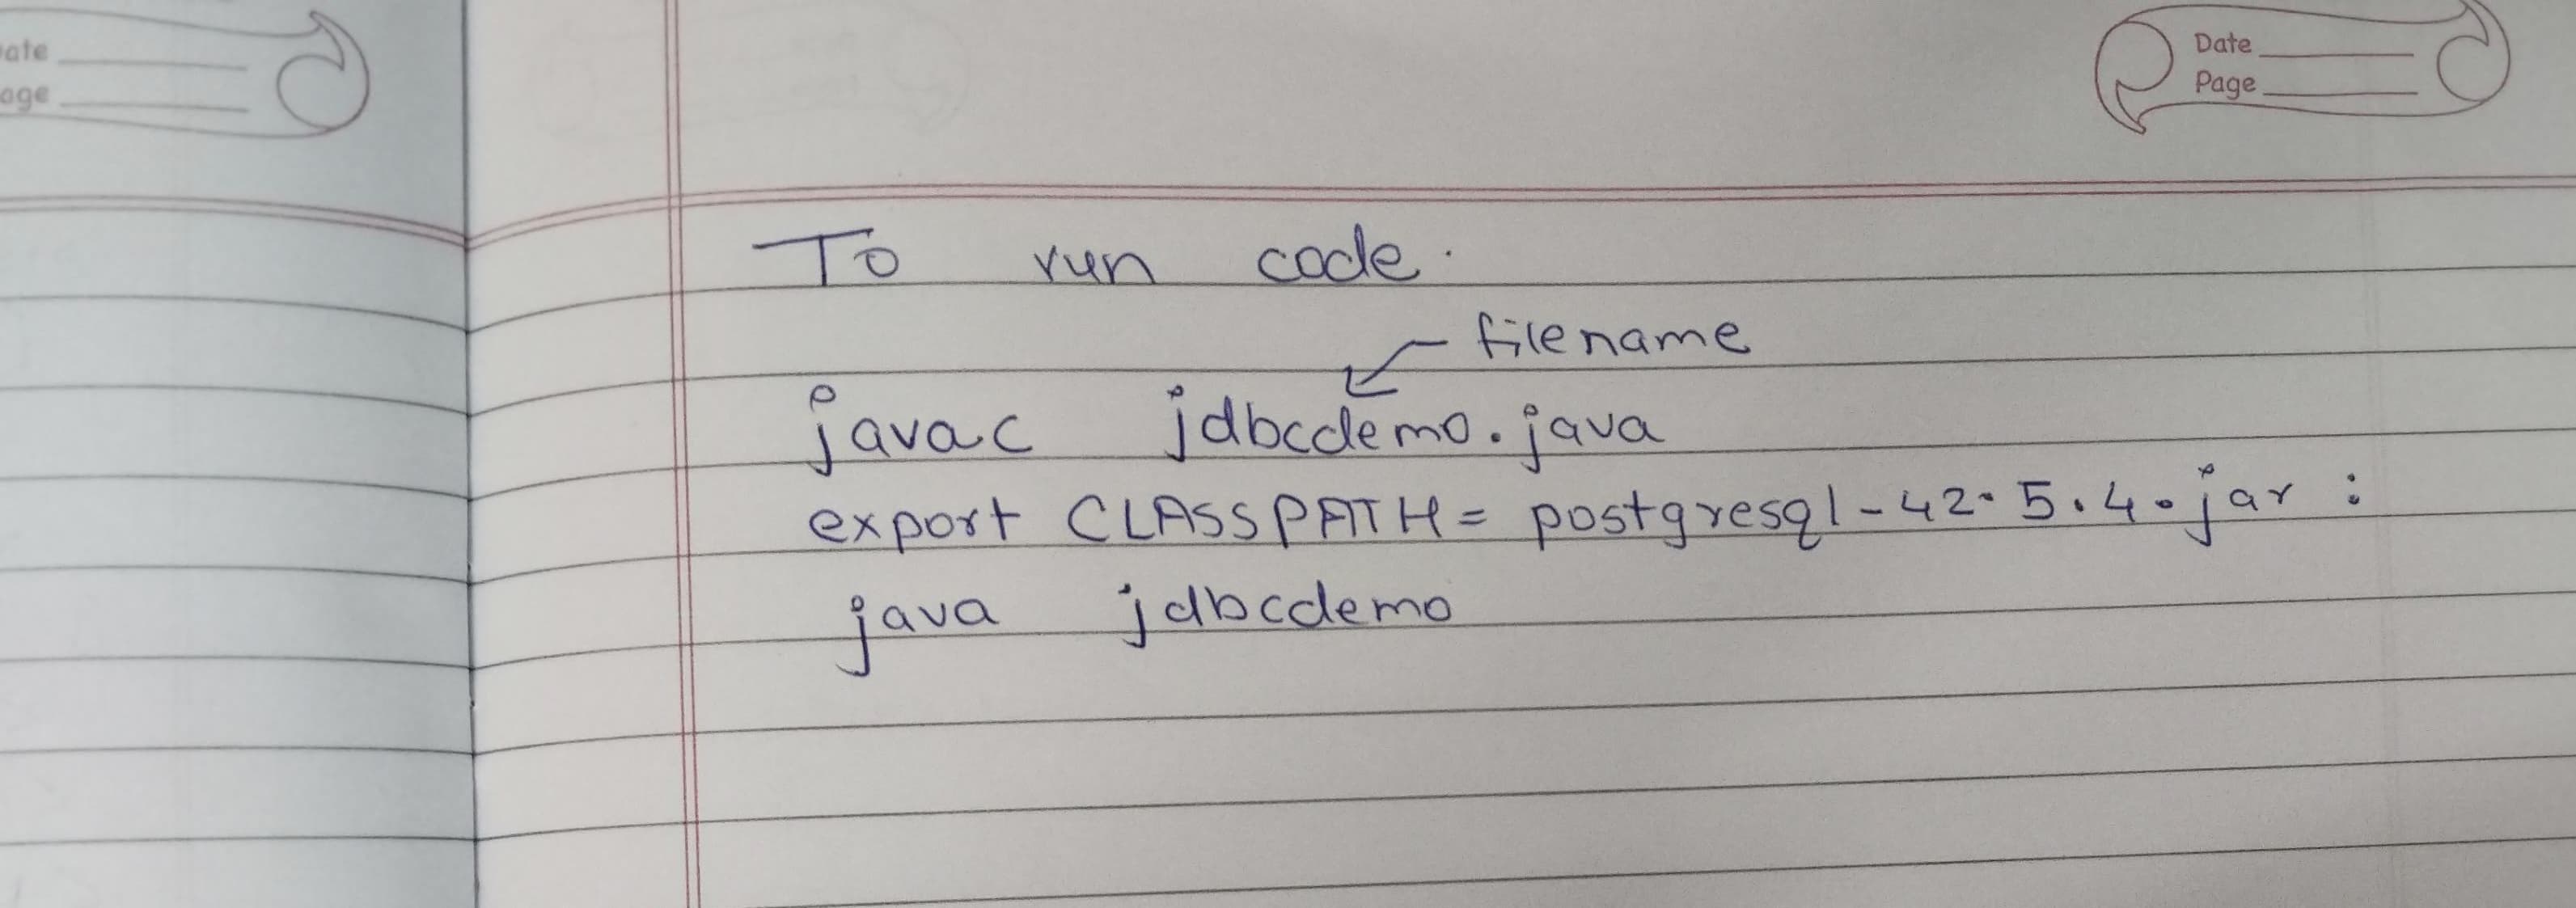 ate
age
Date
Page
To run code.
filename
javac jdbcdemo.java
export CLASSPATH= postgresql-42.5.4.jar :
java jdbcdemo